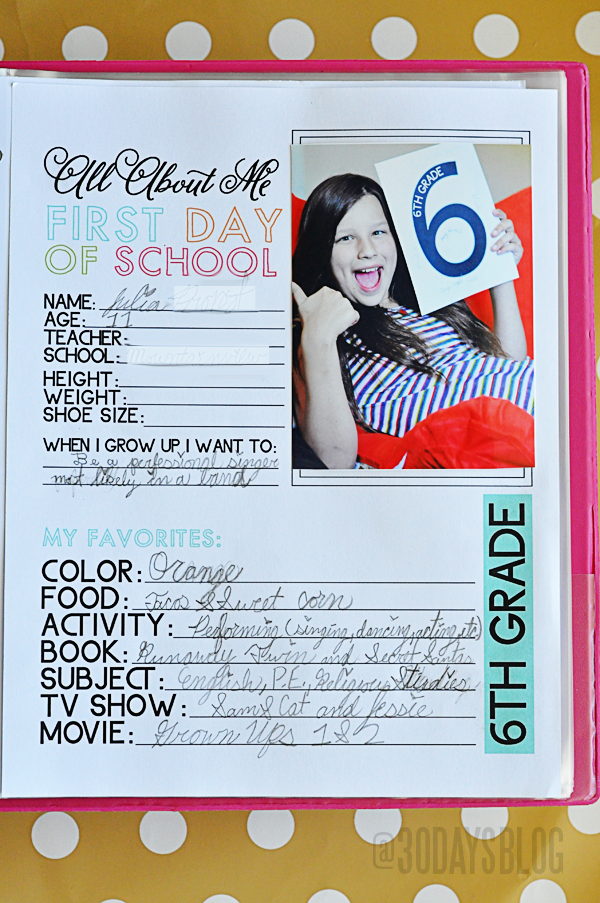 All About Me
FIRST DAY
OF SCHOOL
6TH GRADE
6
NAME: Julia
AGE: 11
TEACHER:
SCHOOL:
HEIGHT:
WEIGHT:
SHOE SIZE:
WHEN I GROW UP I WANT TO:
Be a professional singer
most likely in a band
MY FAVORITES:
COLOR: Orange
FOOD: Tacos & Sweet Corn
ACTIVITY: Performing (singing, dancing, acting, etc)
BOOK: Runaway Twin and Secret Santa
SUBJECT: English, P.E., Religious Studies
TV SHOW: Sam & Cat and Jessie
MOVIE: Grown Ups 1 & 2
6TH GRADE
@30DAYSBLOG